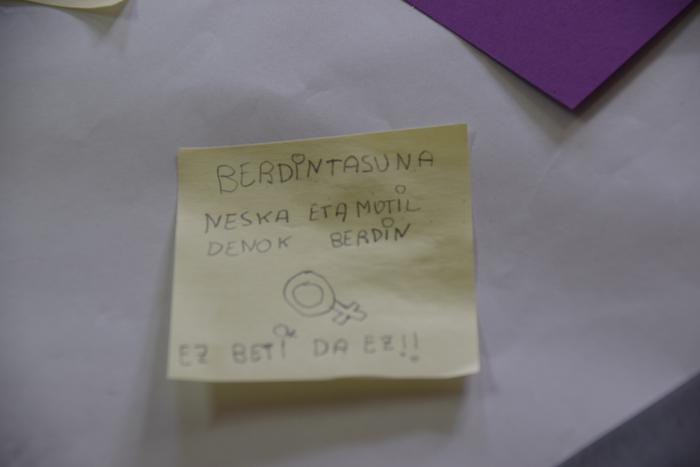 BERDINTASUNA
NESKA ETA MUTIL
DENOK BERDIN
EZ BETI DA EZ!!